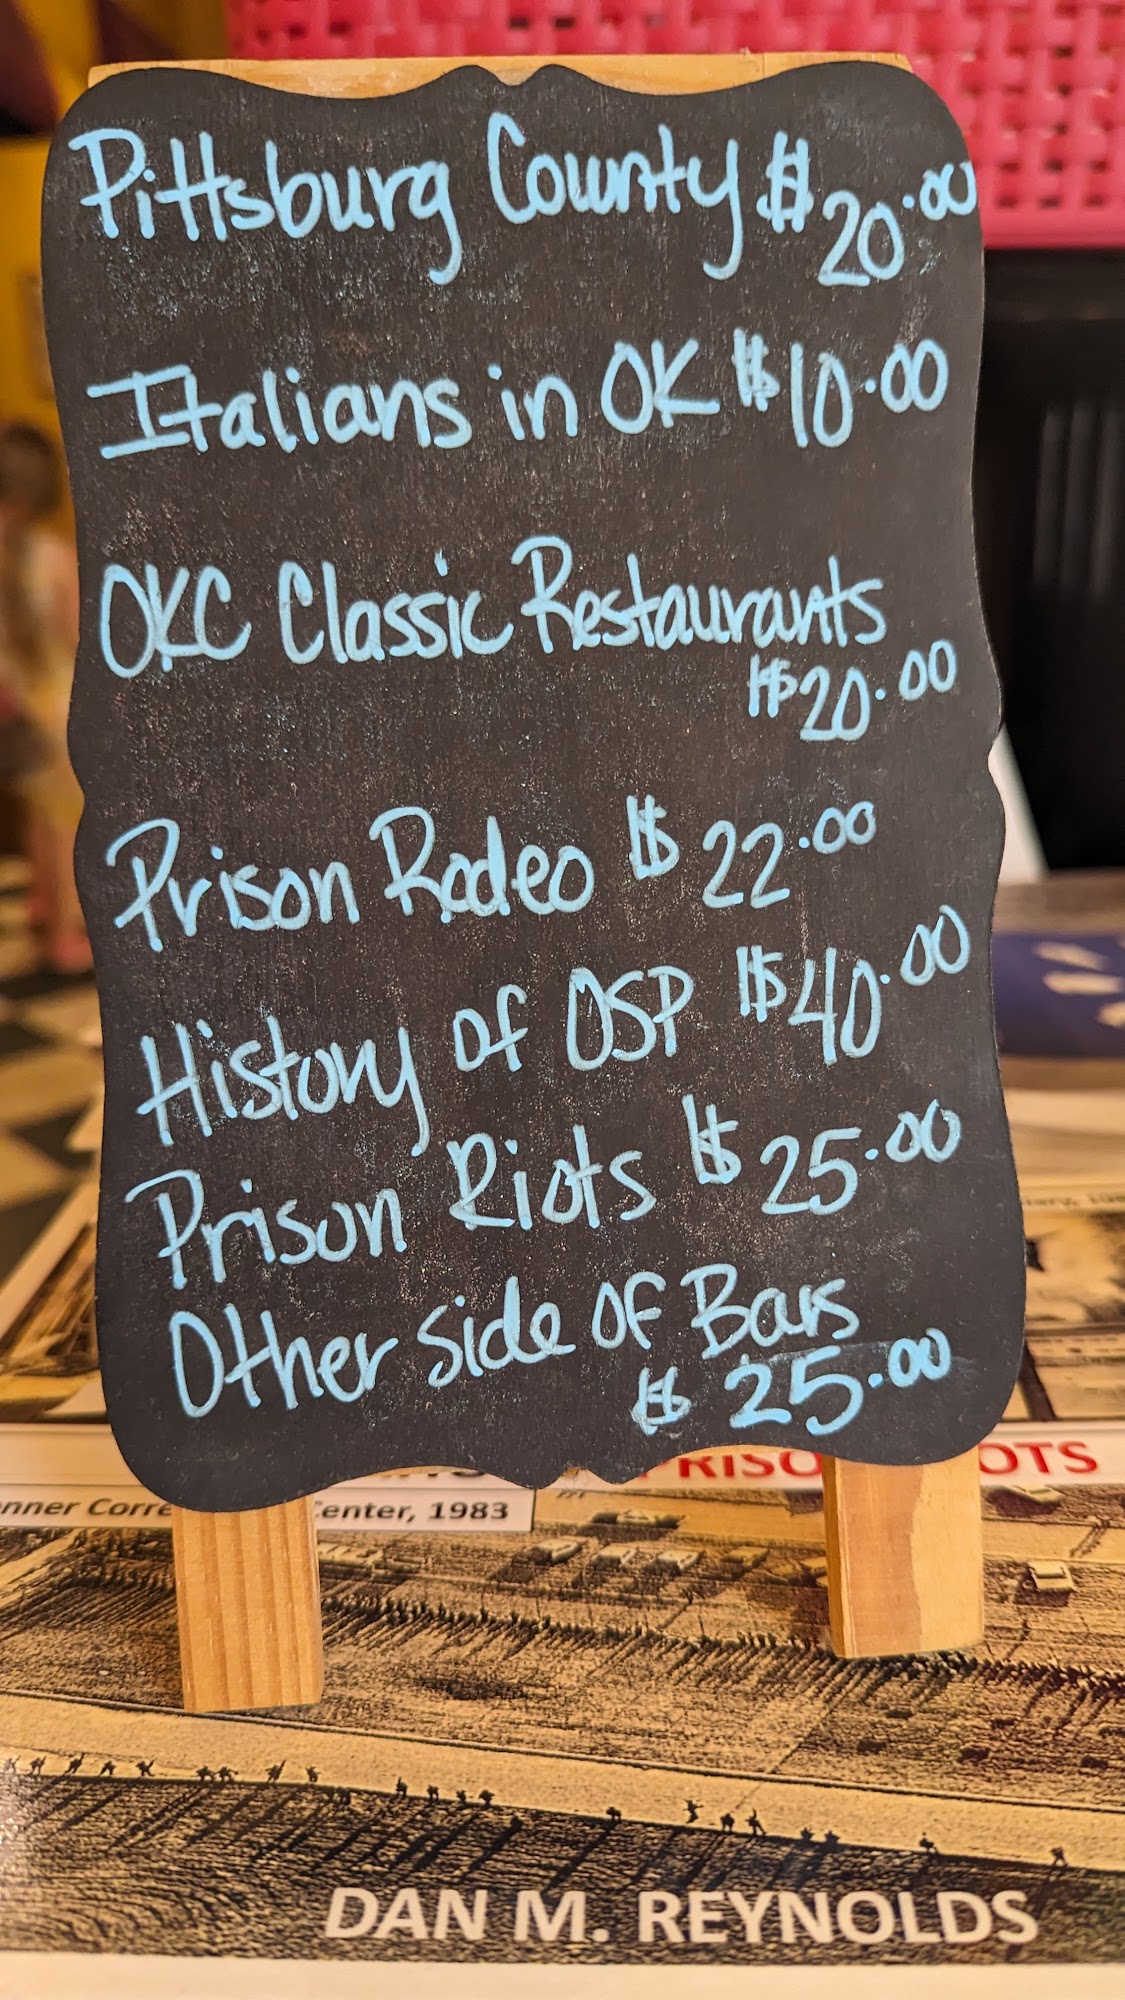 Pittsburg County $20.00
Italians in OK $10.00
OKC Classic Restaurants
$20.00
Prison Rodeo $22.00
History of OSP $40.00
Prison Riots $25.00
Other side of Bars
$25.00
PRISO OTS
nner Corre enter, 1983
DAN M. REYNOLDS